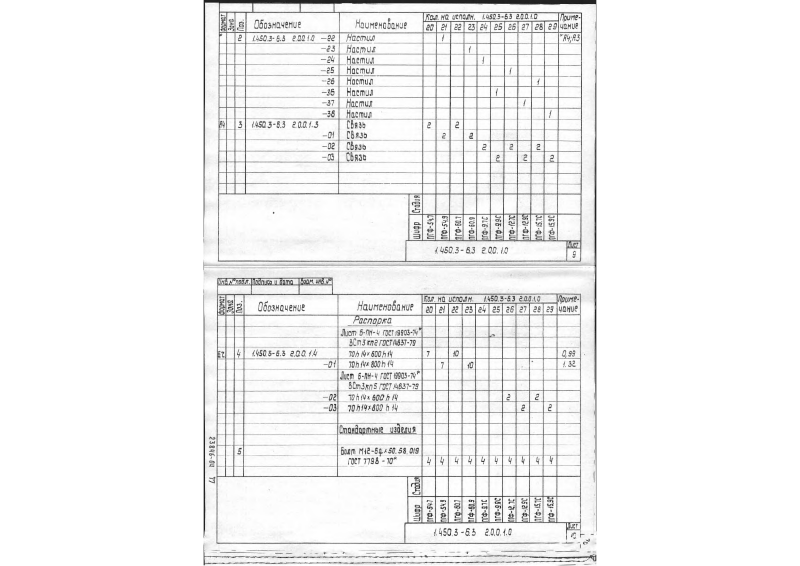 Формат Зона Поз. Обозначение Наименование Кол. на исполн. 1.450.3-6.3 2.0.0.1.0 Приме-чание
20 21 22 23 24 25 26 27 28 29
2 1.450.3-6.3 2.0.0.1.0 -22 Настил 1 *А4;А3
-23 Настил 1
-24 Настил 1
-25 Настил 1
-26 Настил 1
-36 Настил 1
-37 Настил 1
-38 Настил 1
А4 3 1.450.3-6.3 2.0.0.1.3 Связь 2 2
-01 Связь 2 2
-02 Связь 2 2 2
-03 Связь 2 2 2
Стадия
Шифр ПГФ-54.7 ПГФ-54.9 ПГФ-60.7 ПГФ-60.9 ПГФ-9.7С ПГФ-9.9С ПГФ-12.7С ПГФ-12.9С ПГФ-15.7С ПГФ-15.9С
1.450.3-6.3 2.0.0.1.0 Лист
9
Инв.№ подл. Подпись и дата Взам. инв.№
Формат Зона Поз. Обозначение Наименование Кол. на исполн. 1.450.3-6.3 2.0.0.1.0 Приме-чание
20 21 22 23 24 25 26 27 28 29
Распорка
Лист Б-ПН-4 ГОСТ 19903-74*
ВСт3кп2 ГОСТ 14637-79
БЧ 4 1.450.3-6.3 2.0.0.1.4 70h14×600h14 7 10 0,99
-01 70h14×800h14 7 10 1.32
Лист Б-ПН-4 ГОСТ 19903-74*
ВСт3кп5 ГОСТ 14637-79
-02 70h14×600h14 2 2
-03 70h14×800h14 2 2
Стандартные изделия
5 Болт М12-6g×50.58.019
ГОСТ 7798-70* 4 4 4 4 4 4 4 4 4 4
Стадия
Шифр ПГФ-54.7 ПГФ-54.9 ПГФ-60.7 ПГФ-60.9 ПГФ-9.7С ПГФ-9.9С ПГФ-12.7С ПГФ-12.9С ПГФ-15.7С ПГФ-15.9С
1.450.3-6.3 2.0.0.1.0 Лист
10